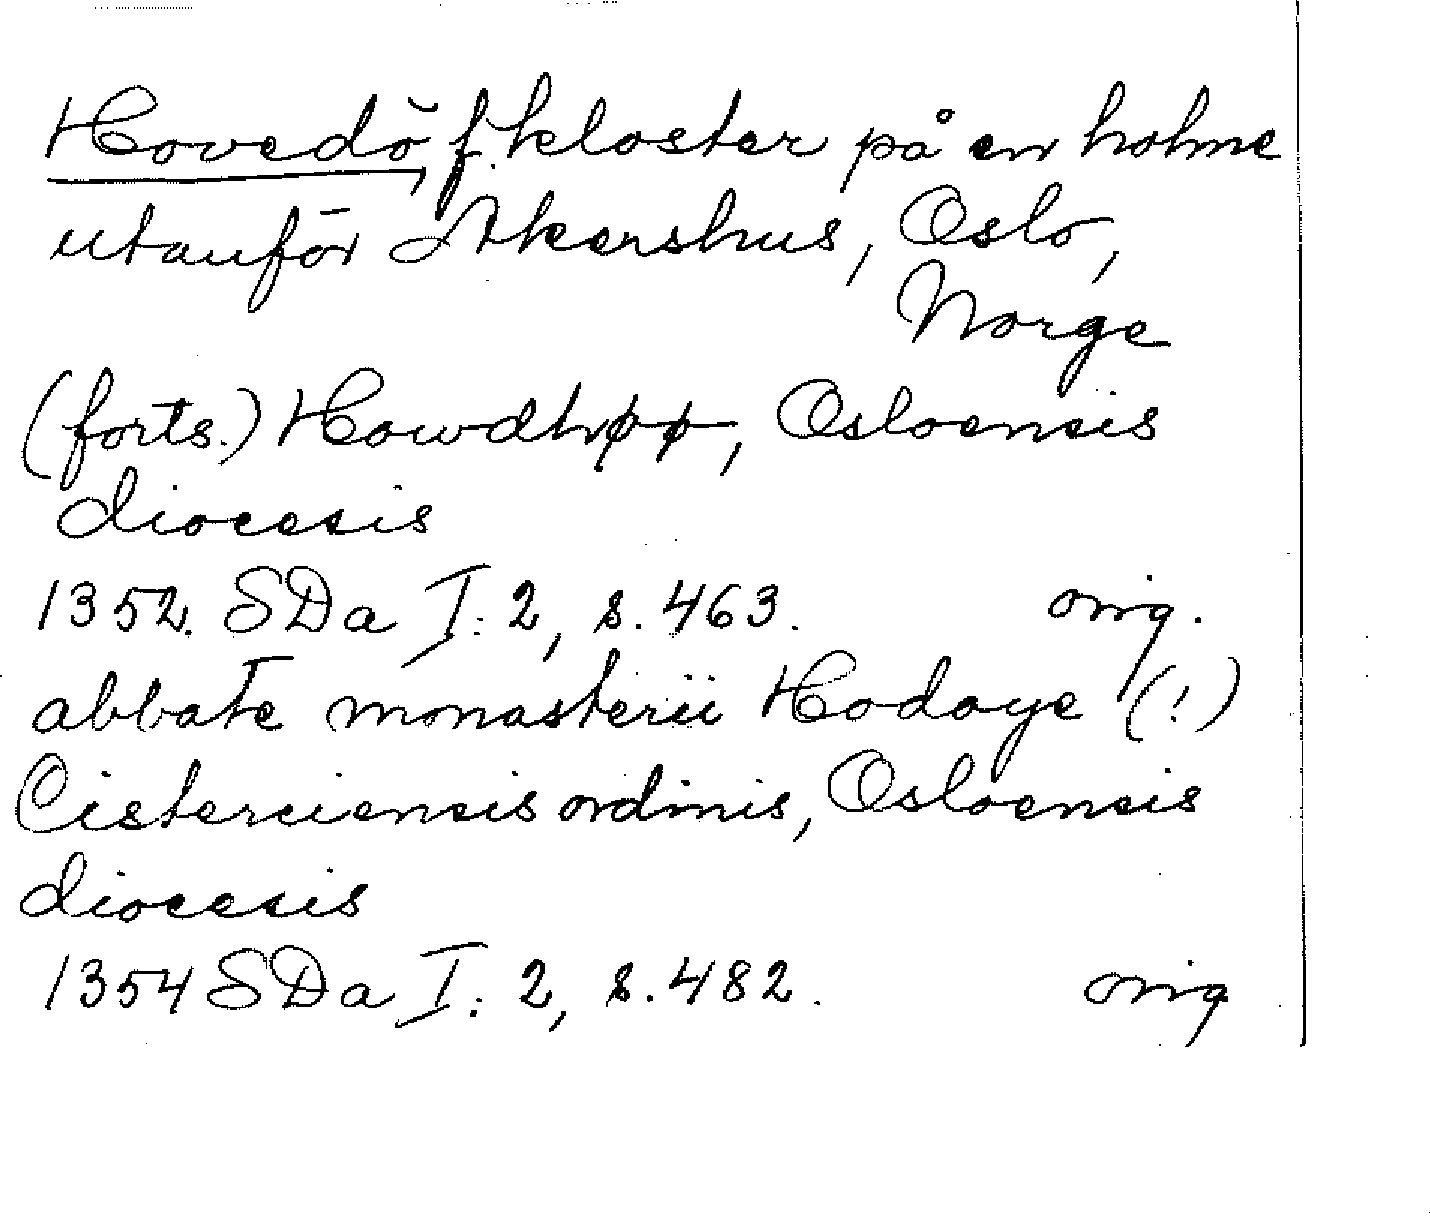 Hovedö, f. kloster på en holme
utanför Akershus, Oslo,
Norge
(forts.) Howdhøø, Osloensis
diocesis
1352. SDa I: 2, s. 463. orig.
abbate monasterii Hodoye (!)
Cisterciensis ordinis, Osloensis
diocesis
1354 SDa I: 2, s. 482. orig